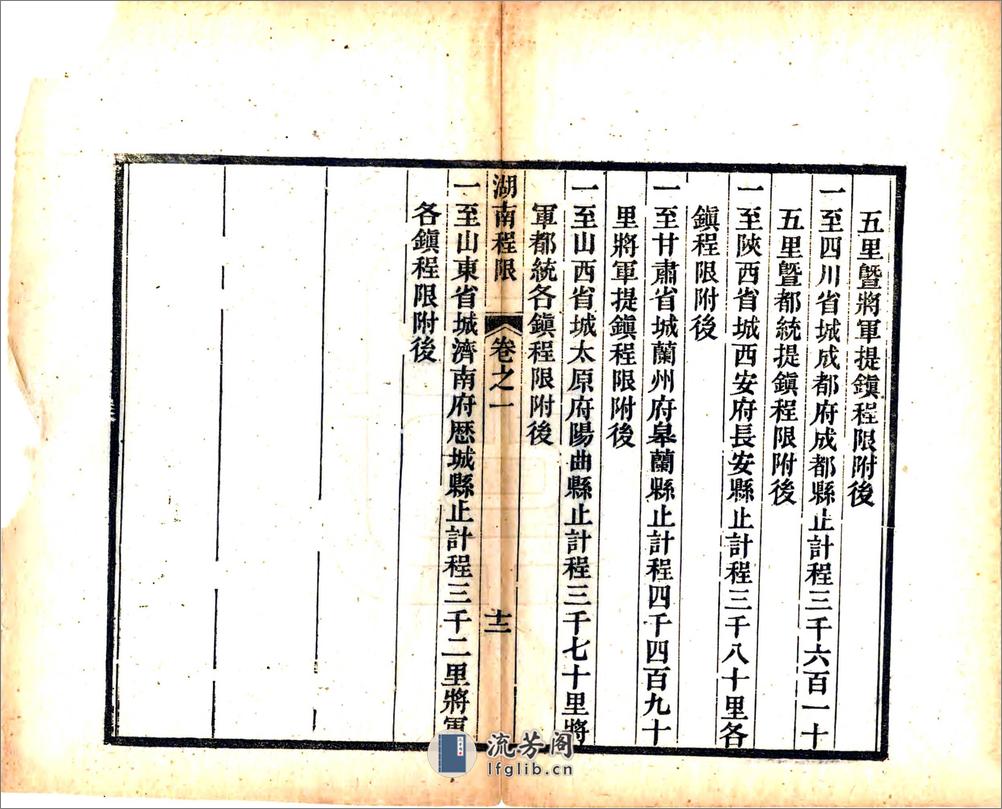 五里暨將軍提鎭程限附後
一至四川省城成都府成都縣止計程三千六百一十
五里暨都統提鎭程限附後
一至陝西省城西安府長安縣止計程三千八十里各
鎭程限附後
一至甘肅省城蘭州府皋蘭縣止計程四千四百九十
里將軍提鎭程限附後
一至山西省城太原府陽曲縣止計程三千七十里將
軍都統各鎭程限附後
湖南程限 卷之一 十二
一至山東省城濟南府歷城縣止計程三千二里將軍
各鎭程限附後
流芳阁
lfglib.cn